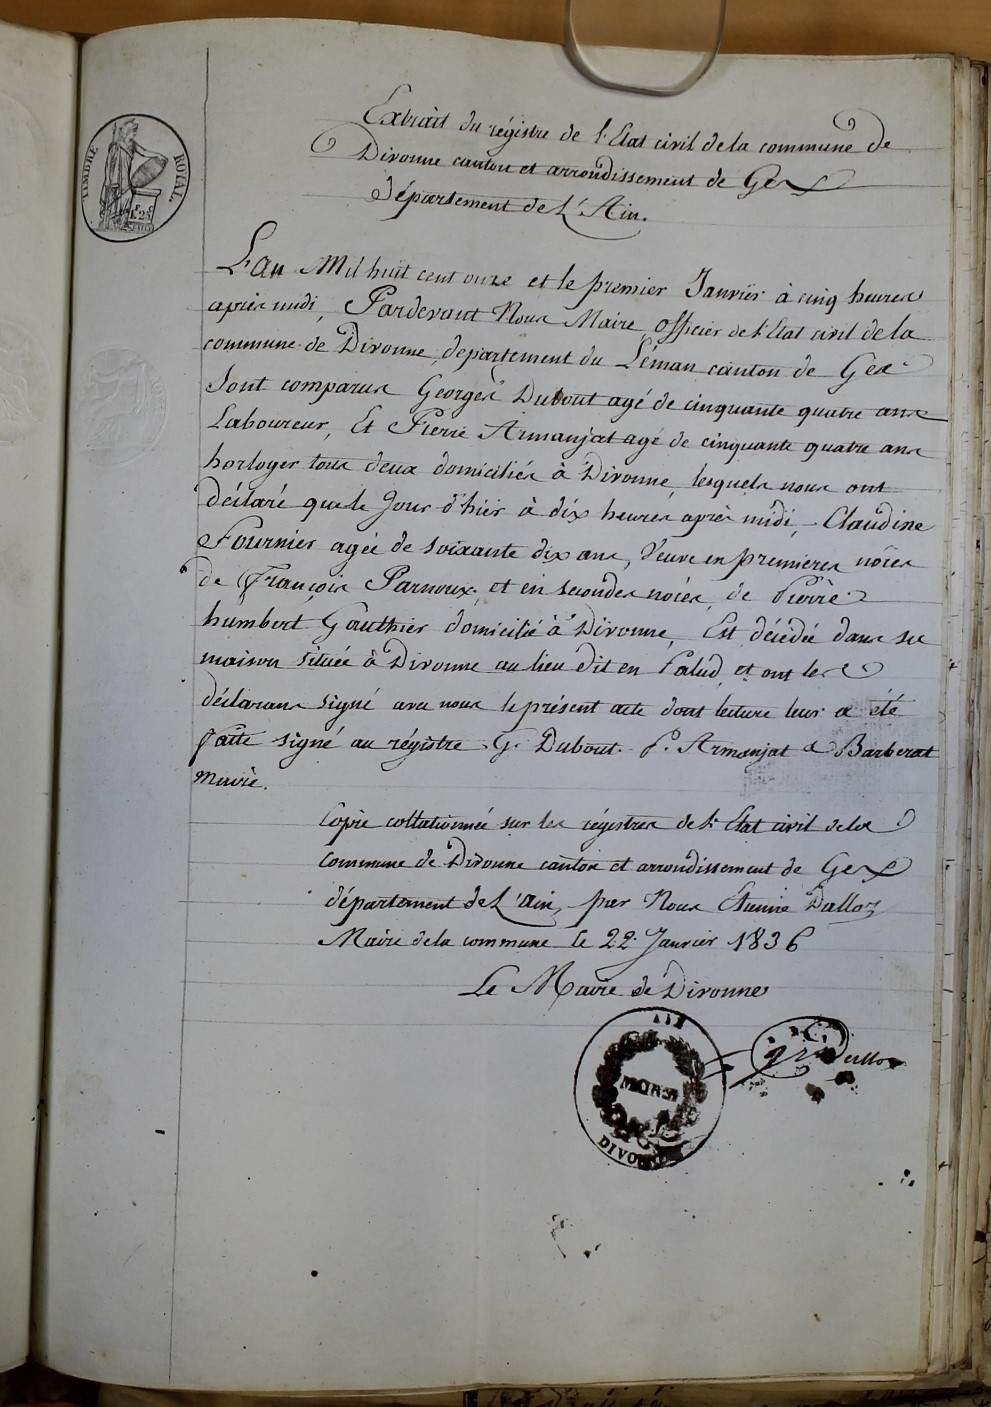 TIMBRE ROYAL
Extrait du régistre de l'Etat civil de la commune de
Divonne canton et arrondissement de Gex
Département de L'Ain.
L'an Mil huit cent onze et le premier Janvier à cinq heures
après midi, Pardevant Nous Maire, officier de l'Etat civil de la
commune de Divonne, departement du Léman canton de Gex
Sont comparus Georges Dubout agé de cinquante quatre ans
Laboureur, Et Pierre Armanjat agé de cinquante quatre ans
horloger tous deux domiciliés à Divonne, lesquels nous ont
déclaré que le Jour d'hier à dix heures après midi, Claudine
Fournier agée de soixante dix ans, Veuve en premieres nôces
de François Parnoux, et en secondes nôces, de Pierre
humbert Gauthier domicilié à Divonne, Est décédée dans sa
maison située à Divonne au lieu dit en Palud, et ont les
déclarans signé avec nous le présent acte dont lecture leur a été
faite signé au régistre G. Dubout. P. Armanjat & Barberat
maire.
Copie collationnée sur les régistres de l'Etat civil de la
Commune de Divonne canton et arrondissement de Gex
département de L'ain, par Nous Etienne Dalloz
Maire de la commune le 22 Janvier 1836
Le Maire de Divonne
AIN
DIVONNE
Dalloz